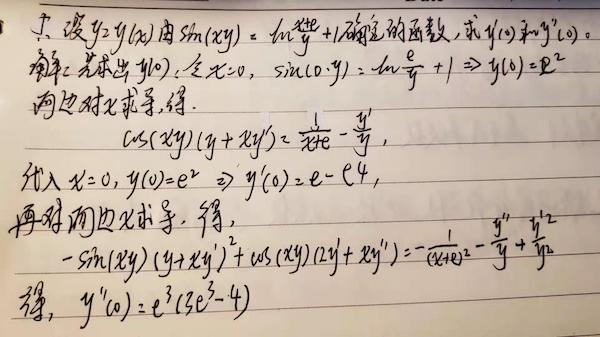 1. 设y=y(x)由sin(xy) = ln (x+e)/y + 1确定的函数,求y'(0)和y''(0)。
解:先求出y(0),令x=0, sin(0·y) = ln e/y + 1 ⇒ y(0)=e²
两边对x求导,得.
cos(xy)(y+xy') = 1/(x+e) - y'/y,
代入x=0, y(0)=e² ⇒ y'(0)=e-e4,
再对两边x求导,得,
-sin(xy)(y+xy')²+cos(xy)(2y'+xy'')=-1/(x+e)² - y''/y + y'²/y²
得, y''(0)=e³(3e³-4)